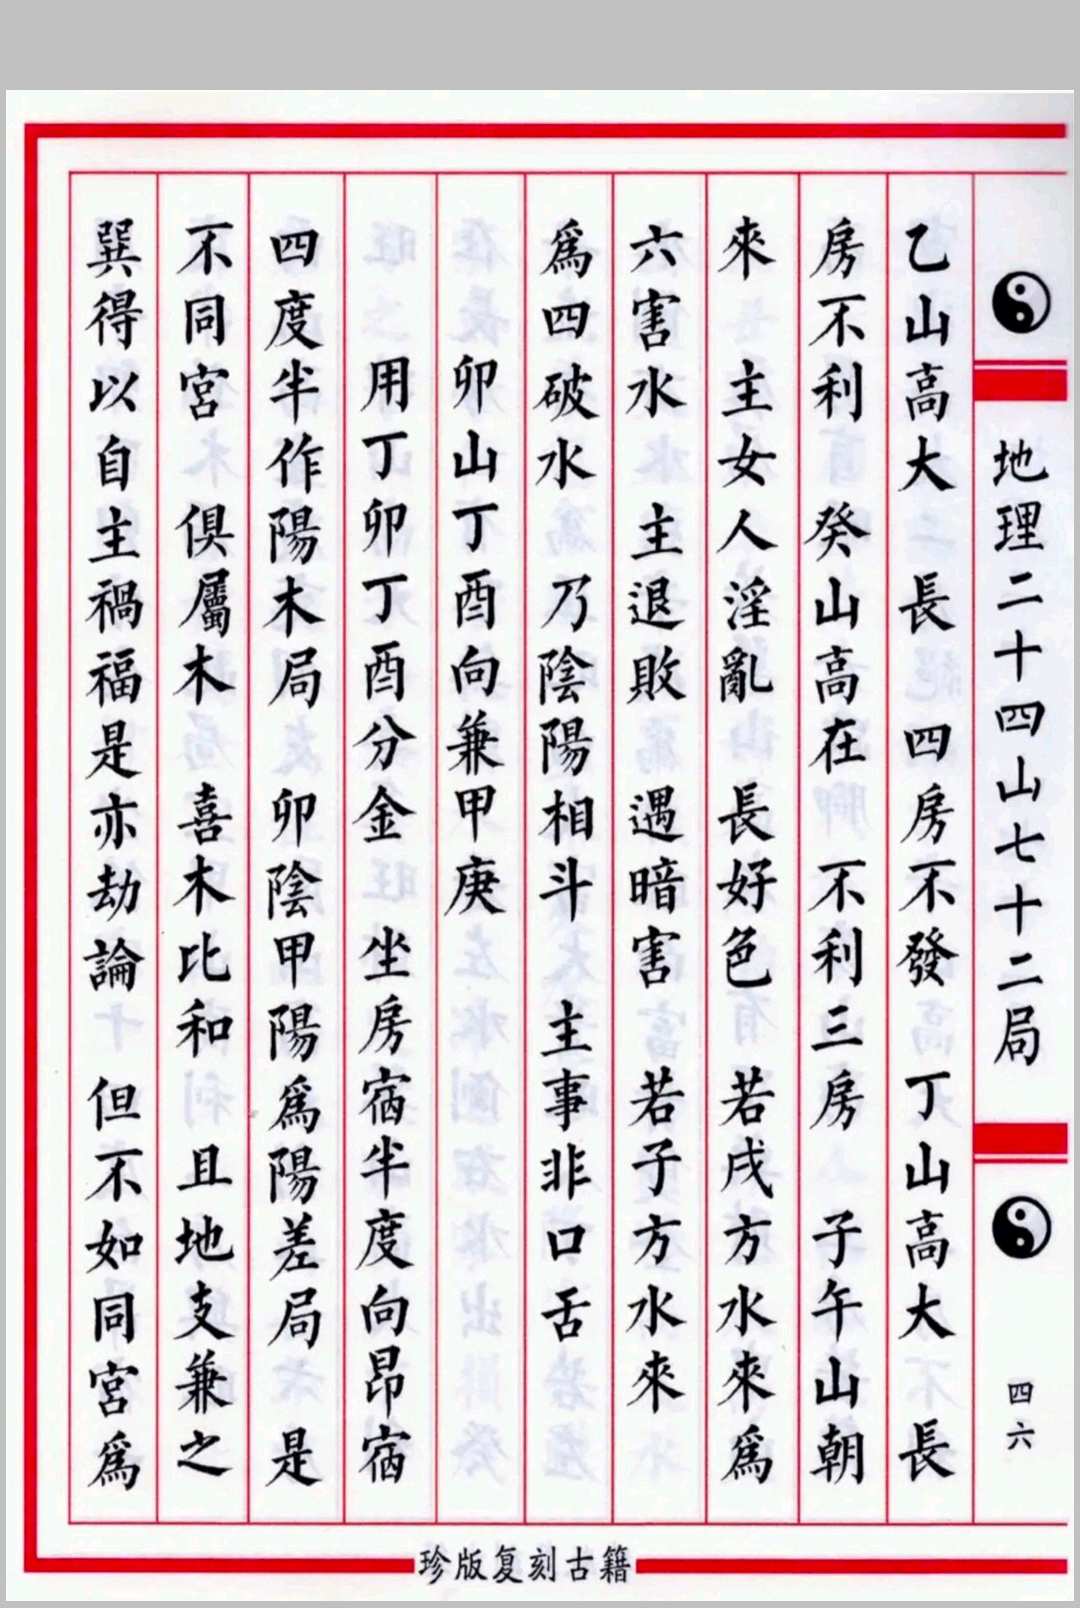 地理二十四山七十二局
四六
乙山高大 長 四房不發 丁山高大 長
房不利 癸山高在 不利三房 子午山朝
來 主女人淫亂 長好色 若戌方水來爲
六害水 主退敗 遇暗害 若子方水來
爲四破水 乃陰陽相斗 主事非口舌
卯山丁酉向兼甲庚
用丁卯丁酉分金 坐房宿半度向昂宿
四度半作陽木局 卯陰甲陽爲陽差局 是
不同宮 俱屬木 喜木比和 且地支兼之
巽得以自主禍福是亦劫論 但不如同宮爲
珍版复刻古籍